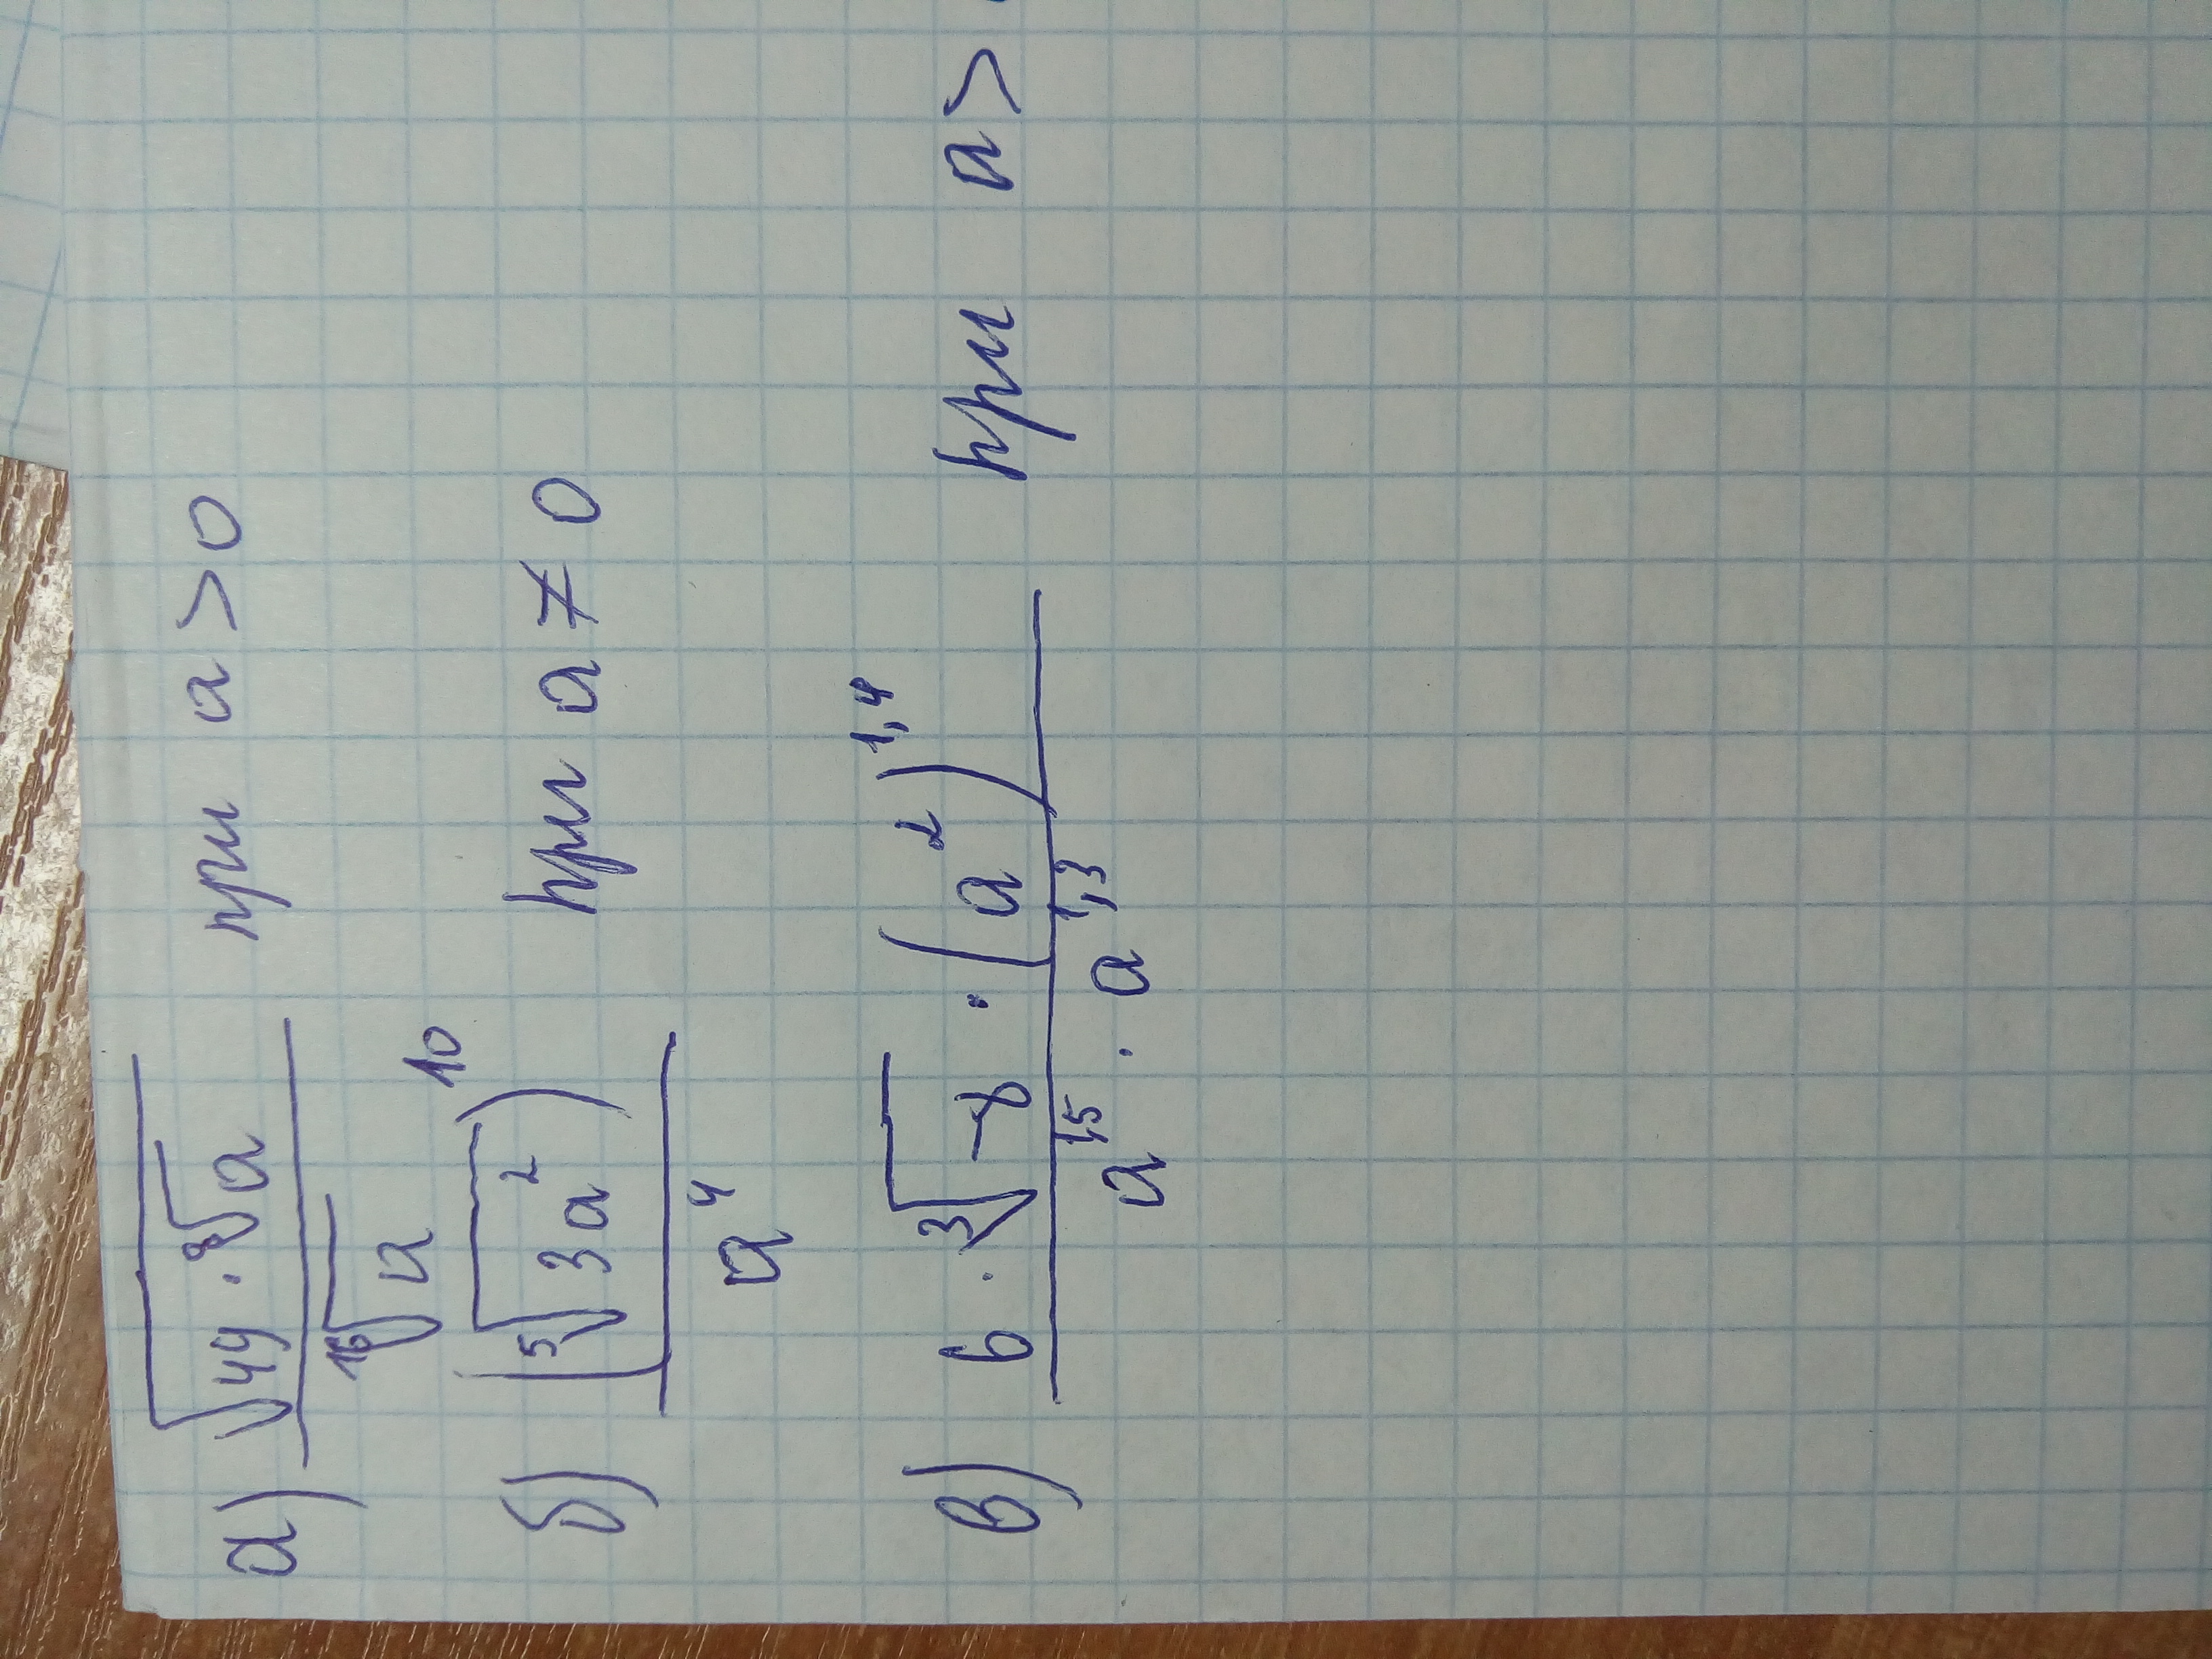 а) √(49 · ⁸√a) / ¹⁶√a при a > 0
б) (⁵√(3a²))¹⁰ / a⁴ при a ≠ 0
в) 6 · ³√-8 · (a²)^1,4 / a^1,5 · a^1,3 при a >